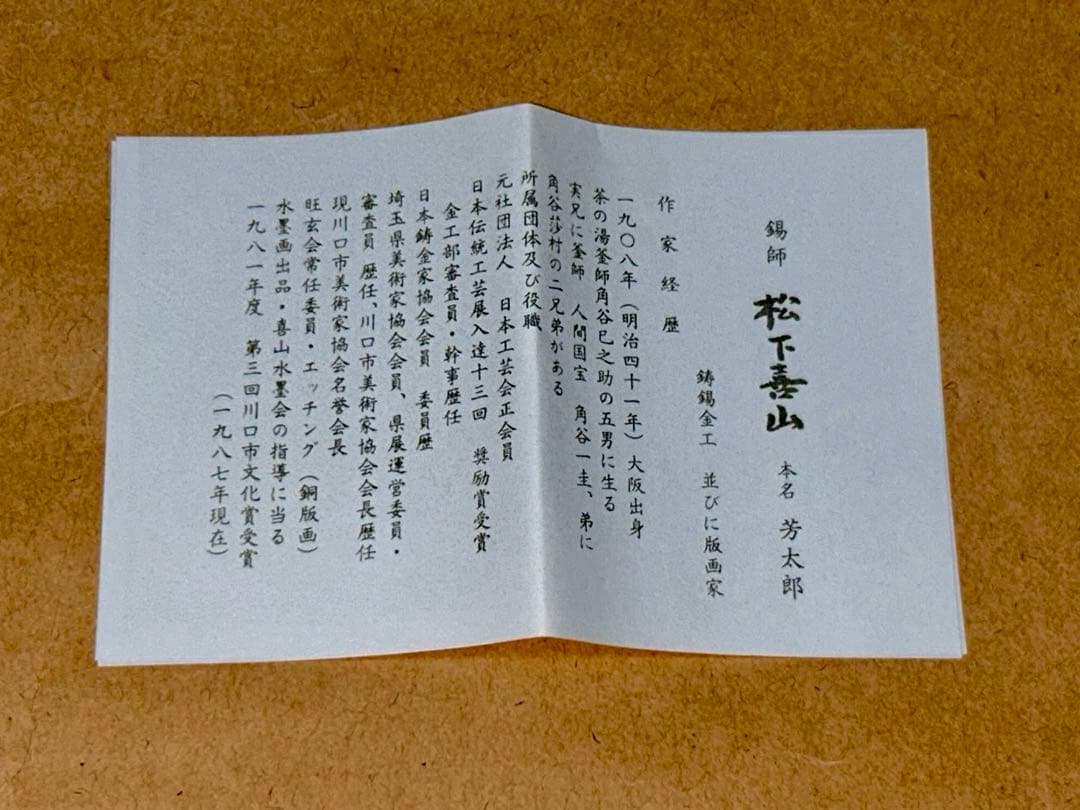 錫師 松下喜山 本名 芳太郎
鋳錫金工 並びに版画家
作家経歴
一九〇八年(明治四十一年)大阪出身
茶の湯釜師角谷巳之助の五男に生る
実兄に釜師 人間国宝 角谷一圭、弟に
角谷莎村の二兄弟がある
所属団体及び役職
元社団法人 日本工芸会正会員
日本伝統工芸展入達十三回 奨励賞受賞
金工部審査員・幹事歴任
日本鋳金家協会会員 委員歴
埼玉県美術家協会会員、県展運営委員・
審査員 歴任、川口市美術家協会会長歴任
現川口市美術家協会名誉会長
旺玄会常任委員・エッチング(銅版画)
水墨画出品・喜山水墨会の指導に当る
一九八一年度 第三回川口市文化賞受賞
(一九八七年現在)